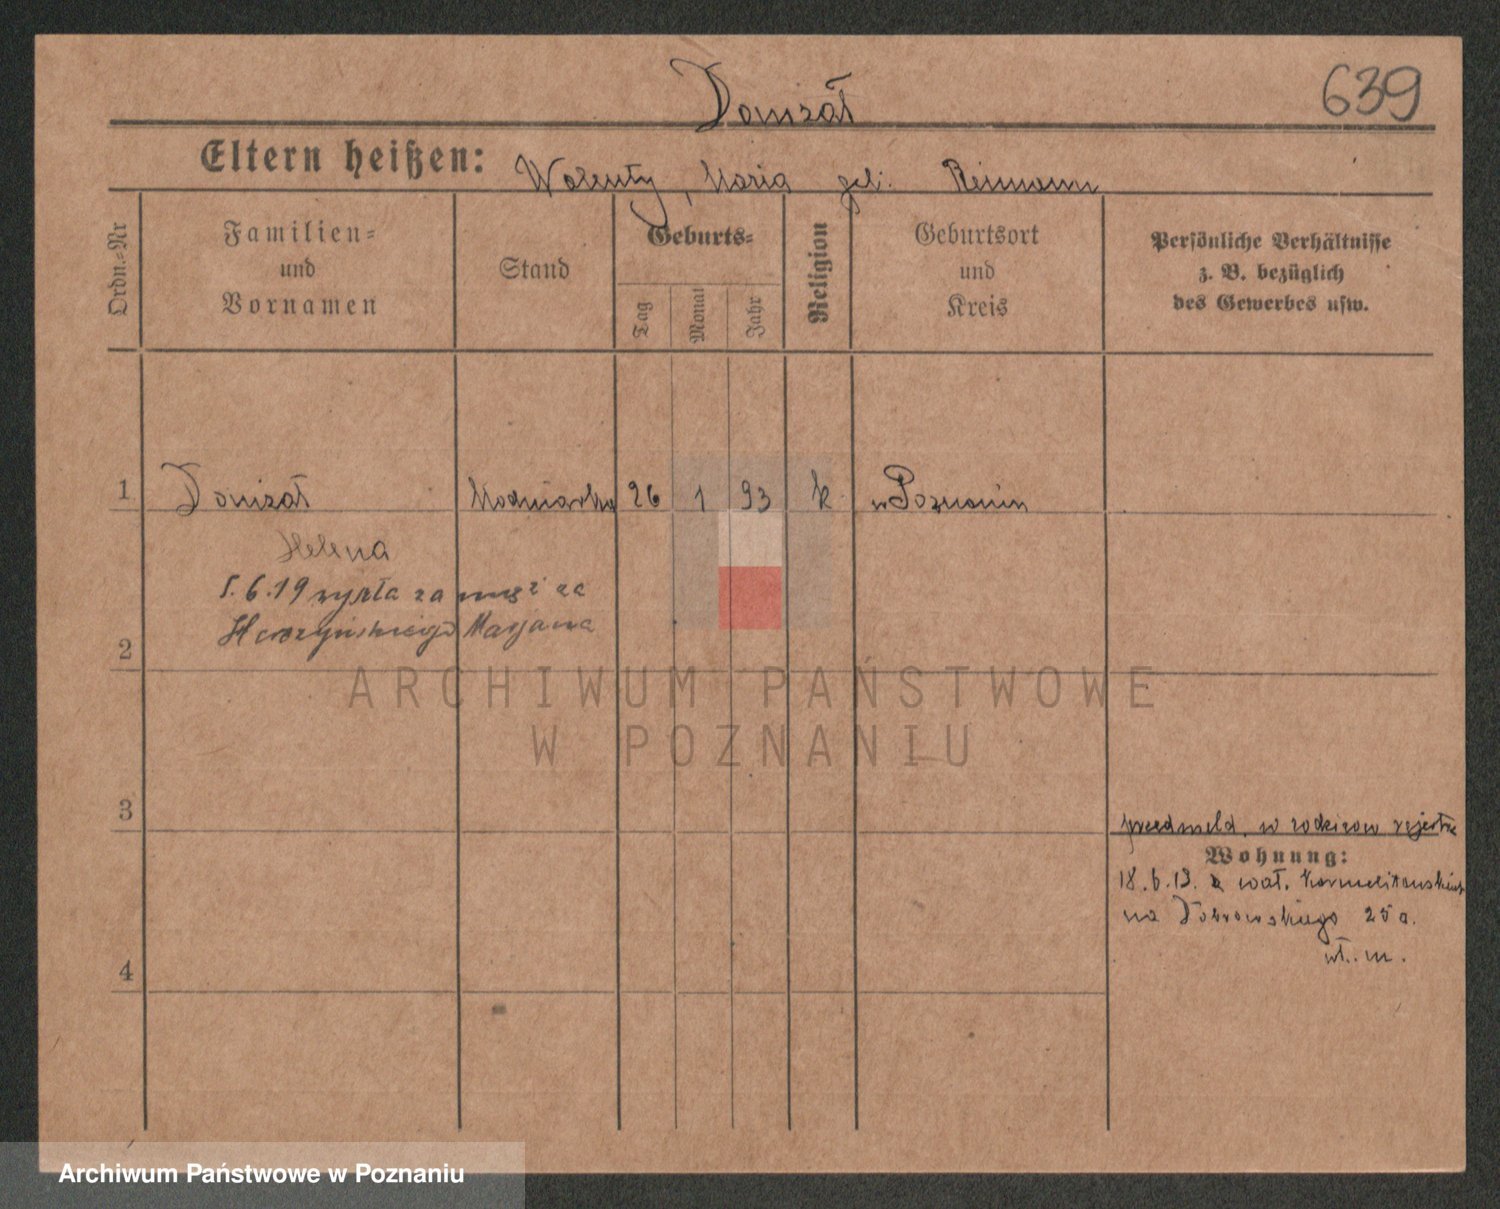 639
Donizał
Eltern heißen: Walenty, Maria geb. Reimann
Ordn.-Nr
Familien- und Vornamen
Stand
Geburts-
Tag
Monat
Jahr
Religion
Geburtsort und Kreis
Persönliche Verhältnisse z. B. bezüglich des Gewerbes usw.
1 Donizał Modniarka 26 1 93 k w Poznaniu
Helena
6.19 wyszła za mąż za
Marjana
2
ARCHIWUM PAŃSTWOWE
W POZNANIU
3
przedmeld. w rodziców rejestrze
Wohnung:
18.6.19. z wał. Karmelitańskiej
na Dąbrowskiego 25 a.
wł. m.
4
Archiwum Państwowe w Poznaniu